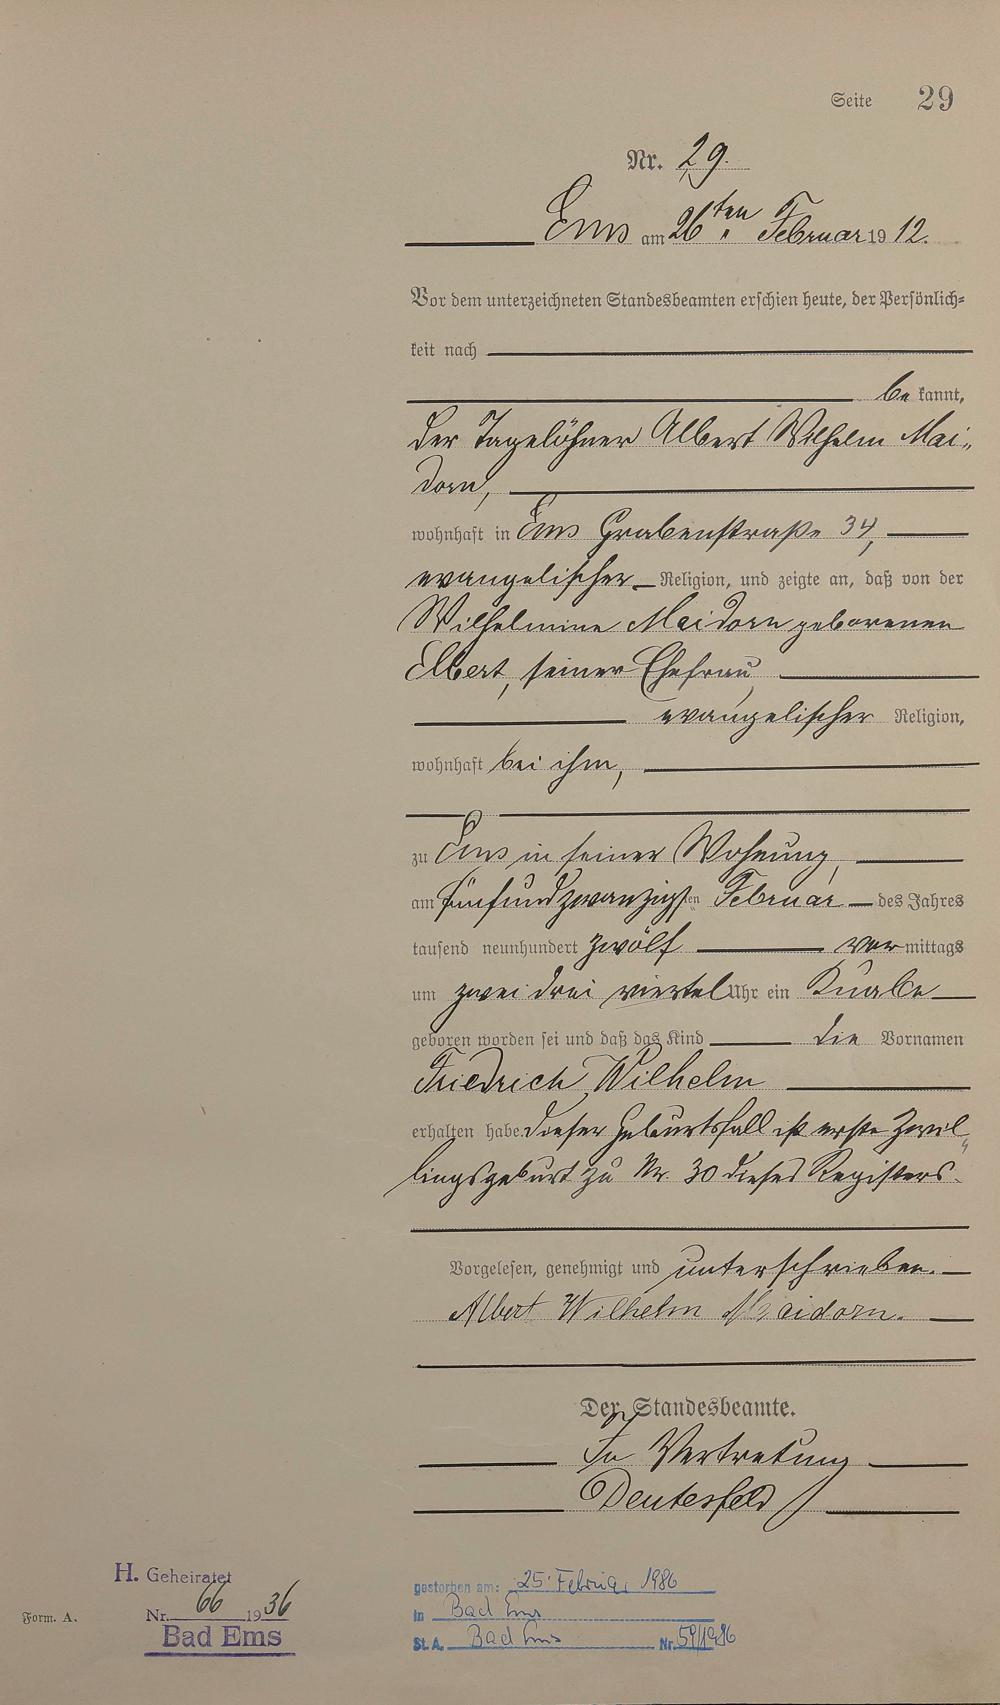 Seite 29
Nr. 29.
Ems am 26ten Februar 1912.
Vor dem unterzeichneten Standesbeamten erschien heute, der Persönlich=
keit nach
be kannt,
der Tagelöhner Albert Wilhelm Mai=
dorn,
wohnhaft in Ems Grabenstraße 34,
evangelischer Religion, und zeigte an, daß von der
Wilhelmine Maidorn geborenen
Elbert, seiner Ehefrau,
evangelischer Religion,
wohnhaft bei ihm,
zu Ems in seiner Wohnung,
am fünfundzwanzigsten Februar des Jahres
tausend neunhundert zwölf vormittags
um zwei drei viertel Uhr ein Knabe
geboren worden sei und daß das Kind die Vornamen
Friedrich Wilhelm
erhalten habe. Dieser Geburtsfall ist erste Zwil=
lingsgeburt zu Nr. 30 dieses Registers.
Vorgelesen, genehmigt und unterschrieben.
Albert Wilhelm Maidorn.
Der Standesbeamte.
In Vertretung
Deutesfeld
H. Geheiratet
Nr. 66 1936
Bad Ems
Form. A.
gestorben am: 25. Februar 1986
in Bad Ems
St. A. Bad Ems Nr. 59/1986